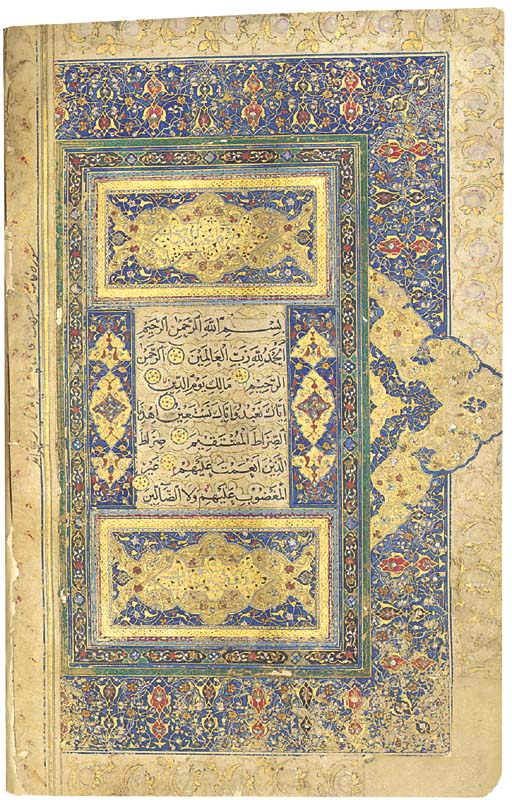 بسم الله الرحمن الرحيم
الحمد لله رب العالمين الرحمن
الرحيم مالك يوم الدين
اياك نعبد واياك نستعين اهدنا
الصراط المستقيم صراط
الذين انعمت عليهم غير
المغضوب عليهم ولا الضالين